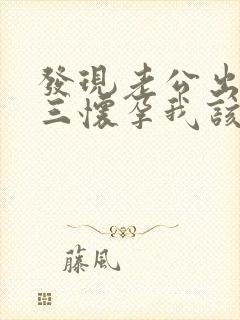 發現老公出
三懷孕我該
藤風